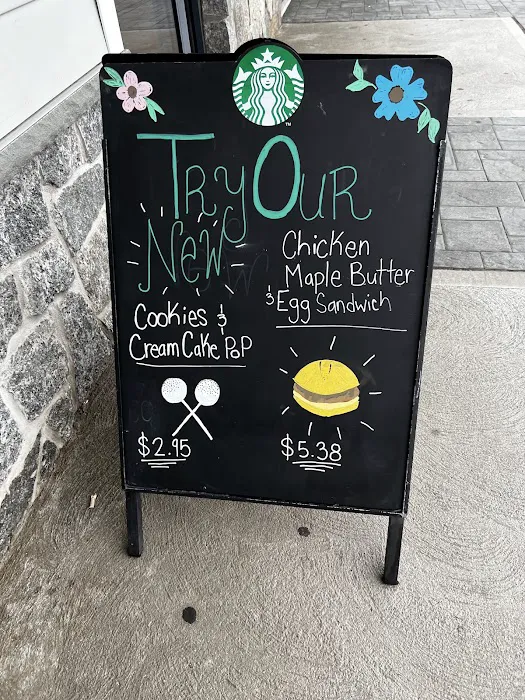 Try Our
New
Cookies &
Cream Cake Pop
$2.95
Chicken
Maple Butter
& Egg Sandwich
$5.38
TM